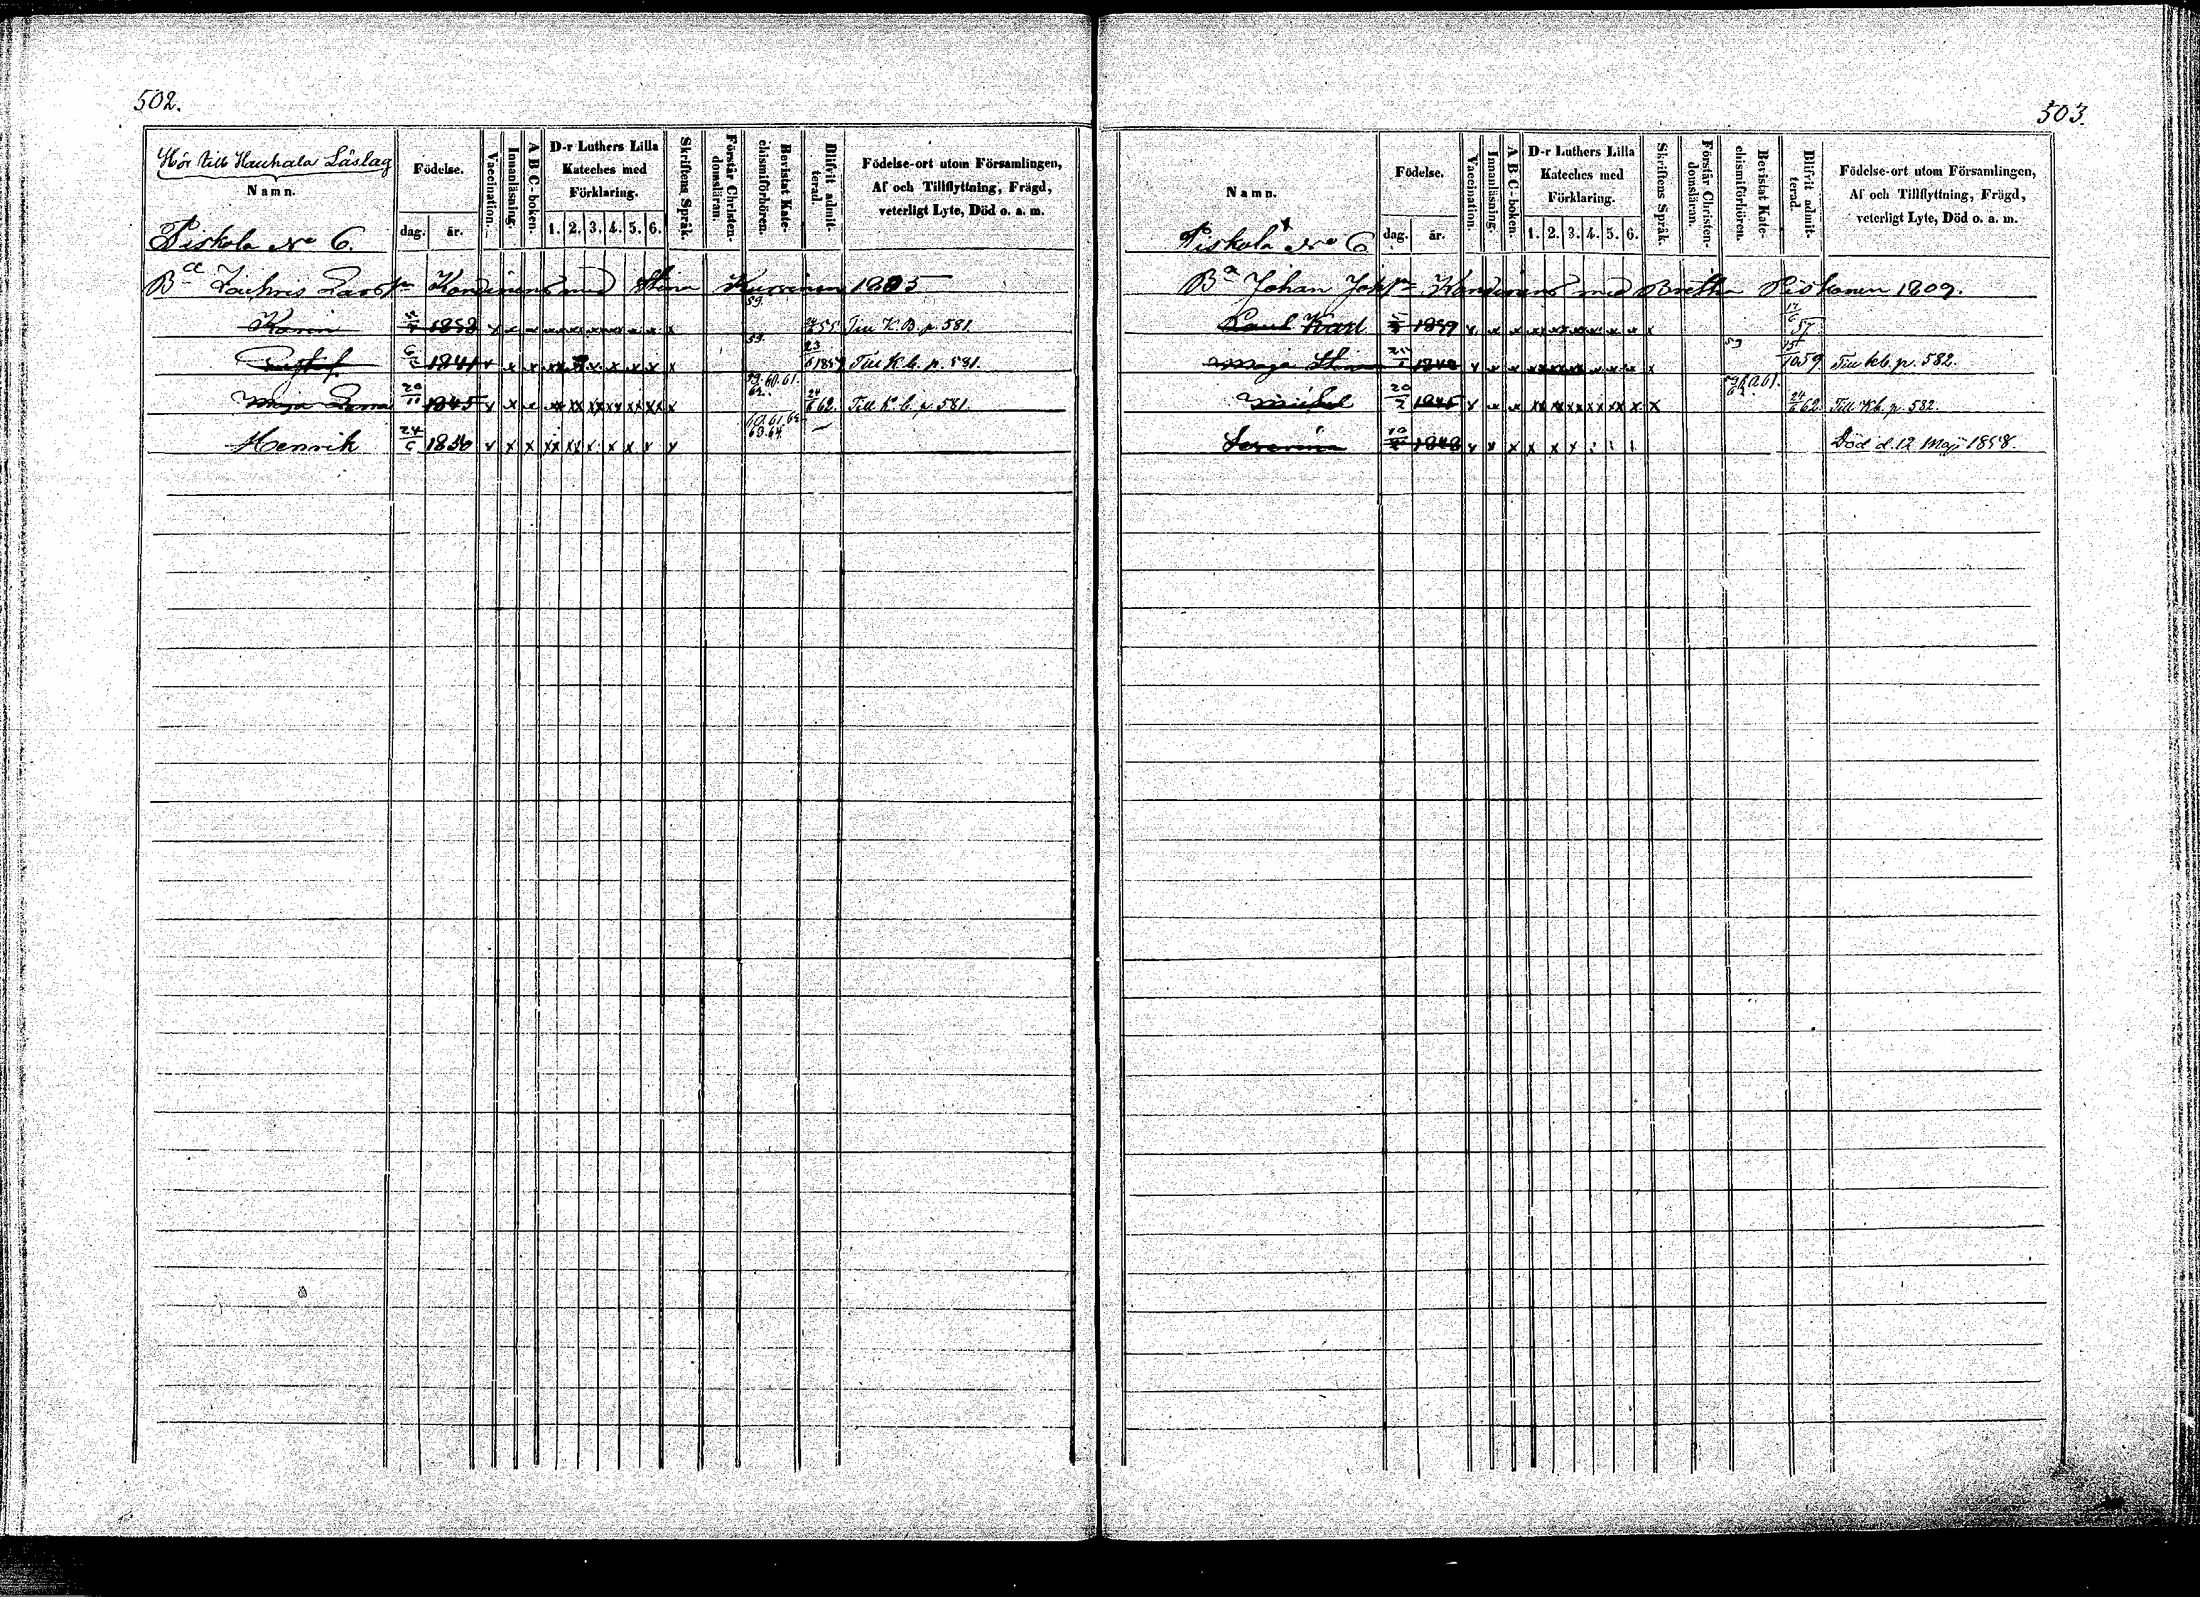 502.
Hör till Hauhala Läslag
Namn.
Födelse.
dag. år.
Vaccination.
Innanläsning.
A B C-boken.
D-r Luthers Lilla Kateches med Förklaring.
1. 2. 3. 4. 5. 6.
Skriftens Språk.
Förstår Christen-domsläran.
Bevistat Kate-chismiförhören.
Blifvit admit-terad.
Födelse-ort utom Församlingen,
Af och Tillflyttning, Frägd,
veterligt Lyte, Död o. a. m.
Piskola No 6.
Ba Zachris Kondinens med Stina
Karin 1838 x x x x 59. 55. Till K. B. p. 581.
Gustaf 1841 x x x x 59. 23/6 1859 Till K. b. p. 581.
Maja Lena 20/11 1845 x x x x 59. 60. 61. 62. 24/6 62. Till K. b. p. 581.
Henrik 24/6 1850 x x x x 60. 61. 62. 63. 64. —
503.
Namn.
Födelse.
dag. år.
Vaccination.
Innanläsning.
A B C-boken.
D-r Luthers Lilla Kateches med Förklaring.
1. 2. 3. 4. 5. 6.
Skriftens Språk.
Förstår Christen-domsläran.
Bevistat Kate-chismiförhören.
Blifvit admit-terad.
Födelse-ort utom Församlingen,
Af och Tillflyttning, Frägd,
veterligt Lyte, Död o. a. m.
Piskola No 6
Ba Johan Kondinens med Bretha Piskonen 1809.
Karl x x x x 57.
Maja Stina x x x x 59 15/10 59. Till kb. p. 582.
Mickel 20/2 1845 x x x x 59. 60. 61. 62. 24/6 62. Till Kb. p. 582.
Severina 1848 x x x x Död d. 12 Maj 1858.